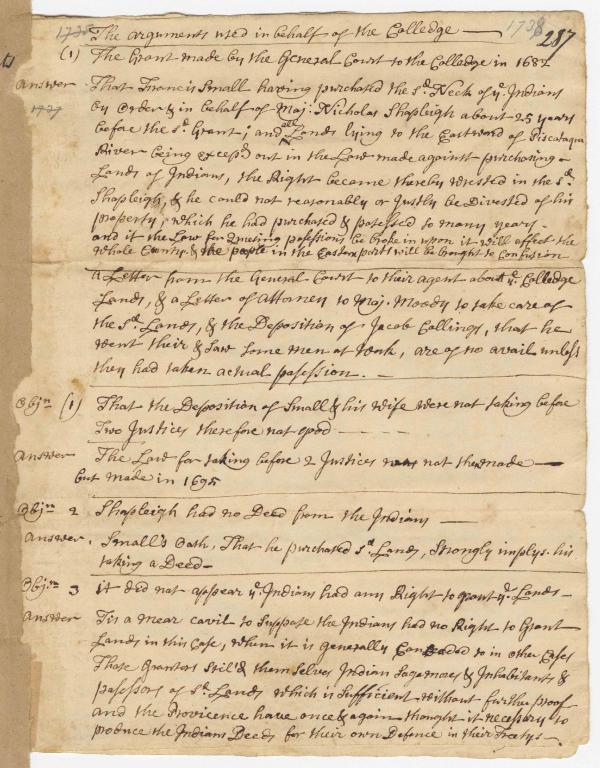 1735 The arguments used in behalf of the Colledge — 1738 287
(1) The Grant made by the General Court to the Colledge in 1682
Answer That Francis Small having purchased the sd. Neck of ye. Indians
1737 by order & in behalf of Maj: Nicholas Shapleigh about 25 years
before the sd. Grant; and all Lands lying to the Eastward of Piscataqua
River being excepd. out in the Law made against purchasing
Lands of Indians, the Right became thereby vessted in the sd.
Shapleigh, & he could not reasonably or Justly be Divested of his
property, which he had purchased & posessed so many years.
and if the Law for Quieting posessions be broke in upon it will affect the
whole County & the people in the Eastern parts will be brought to confusion
a Letter from the General Court to their agent about ye. Colledge
Lands, & a Letter of Attorney to Maj. Moody to take care of
the sd. Lands, & the Deposition of Jacob Collings, that he
went their & saw some men at work, are of no avail unless
they had taken actual posession. —
Objn (1) That the Deposition of Small & his wife were not taking before
Two Justices therefore not good — — —
Answer The Law for taking before 2 Justices was not then made —
but made in 1695
Objn 2 Shapleigh had no Deed from the Indians —
Answer. Small's Oath, That he purchased sd. Lands, Strongly implys his
taking a Deed —
Objn 3 it did not appear ye. Indians had any Right to grant ye. Lands —
Answer Tis a mear cavil to suppose the Indians had no Right to Grant
Lands in this Case, when it is generally Conceeded to in other Cases
Those Grantors Stil'd themselves Indian Sagemores & Inhabitants &
posessors of sd. Lands which is sufficient without further proof
and the Provicence have once & again thought it necessary to
produce the Indians Deeds for their own Defence in their Treatys —